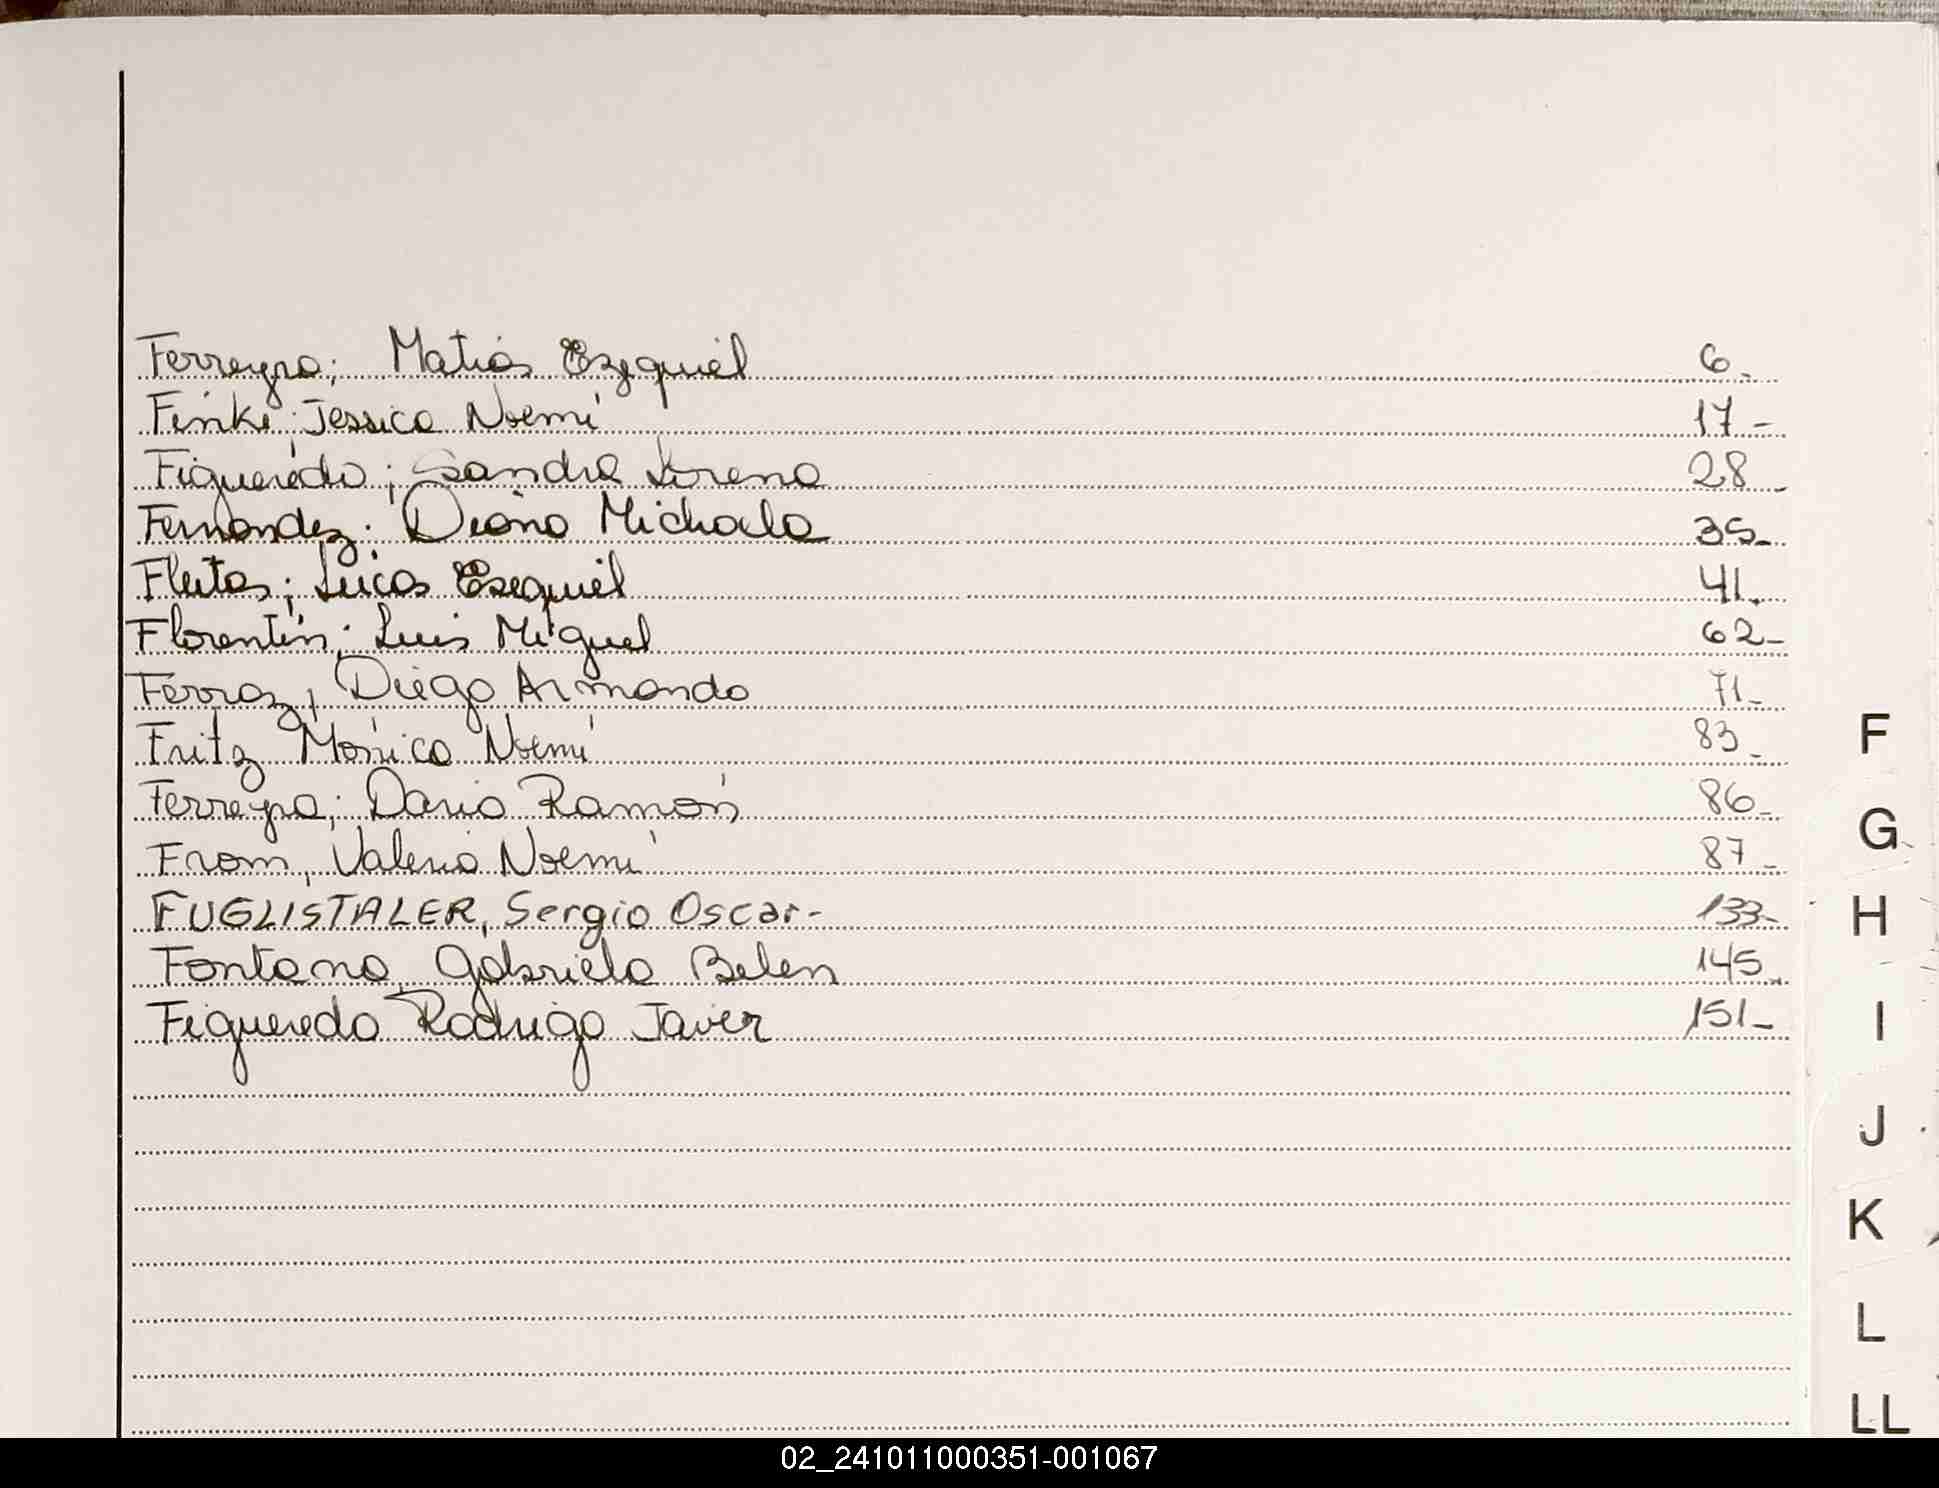 Ferreyra; Matias Ezequiel 6-
Finke; Jessica Noemí 17-
Figueredo; Sandra Lorena 28-
Fernandez; Diana Michaela 35-
Fleitas; Lucas Ezequiel 41.
Florentín; Luis Miguel 62-
Ferraz, Diego Armando 71-
Fritz Mónica Noemí 83-
Ferreyra; Dario Ramón 86-
From, Valeria Noemí 87-
FUGLISTALER, Sergio Oscar- 133-
Fontana, Gabriela Belen 145-
Figueredo Rodrigo Javier 151-
F
G
H
I
J
K
L
LL
02_241011000351-001067